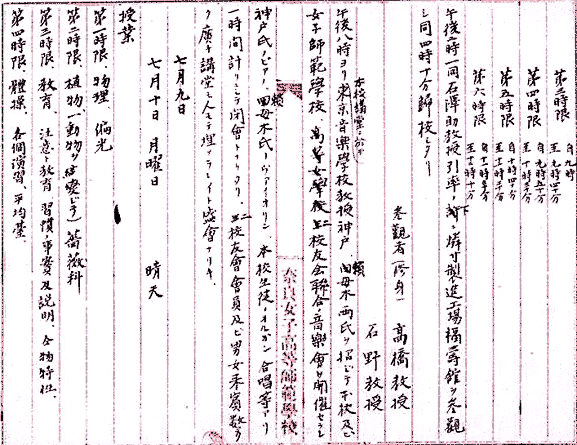 第三時限 自九時
第四時限 自九時五十分 至十時三十分
第五時限 自十時四十分 至十一時二十分
第六時限 自十一時三十分 至十二時十分
午後一時一同石澤助教授引率ノ許ニ燐寸製造工場福壽館ヲ參觀
シ同四時十分歸校セリ
參觀者(修身) 高橋教授
石野教授
午後八時ヨリ本校講堂ニ於テ東京音樂學校教授神戸 田母木両氏ヲ招ジテ本校及ビ
女子師範學校 高等女學校並ニ校友会聯合音樂會ヲ開催セラレ
神戸氏ノピアノ 頼母木氏ノヴァイオリン 本校生徒ノオルガン 合唱等アリ
一時間計リニテ閉會トナリタリ 並ニ校友會會員及ビ男女来賓数多
ク廣キ講堂モ人モテ埋メラレイト盛會ナリキ
七月九日
七月十日 月曜日 晴天
授業
第一時限、物理 偏光
第二時限、植物(動物ヲ変更シテ)薔薇科
第三時限、教育 注意ト教育 習慣ノ事実及説明、合物特性、
第四時限、體操、各個演習、平均臺
奈良女子高等師範學校